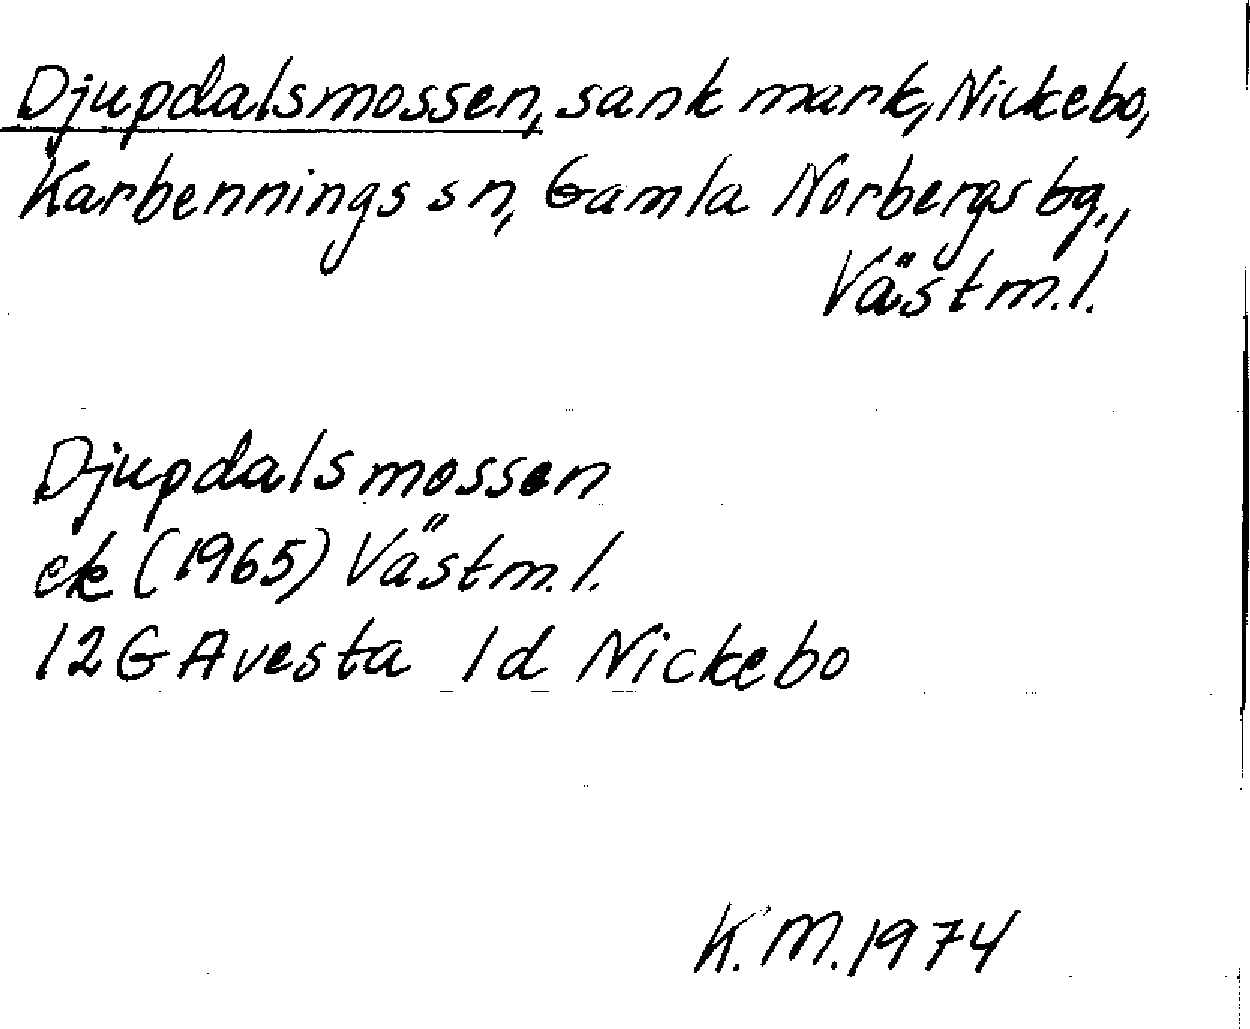 Djupdalsmossen, sank mark, Nickebo,
Karbennings sn, Gamla Norbergs bg.,
Västm.l.
Djupdalsmossen
ek (1965) Västm.l.
12G Avesta 1d Nickebo
K.M. 1974